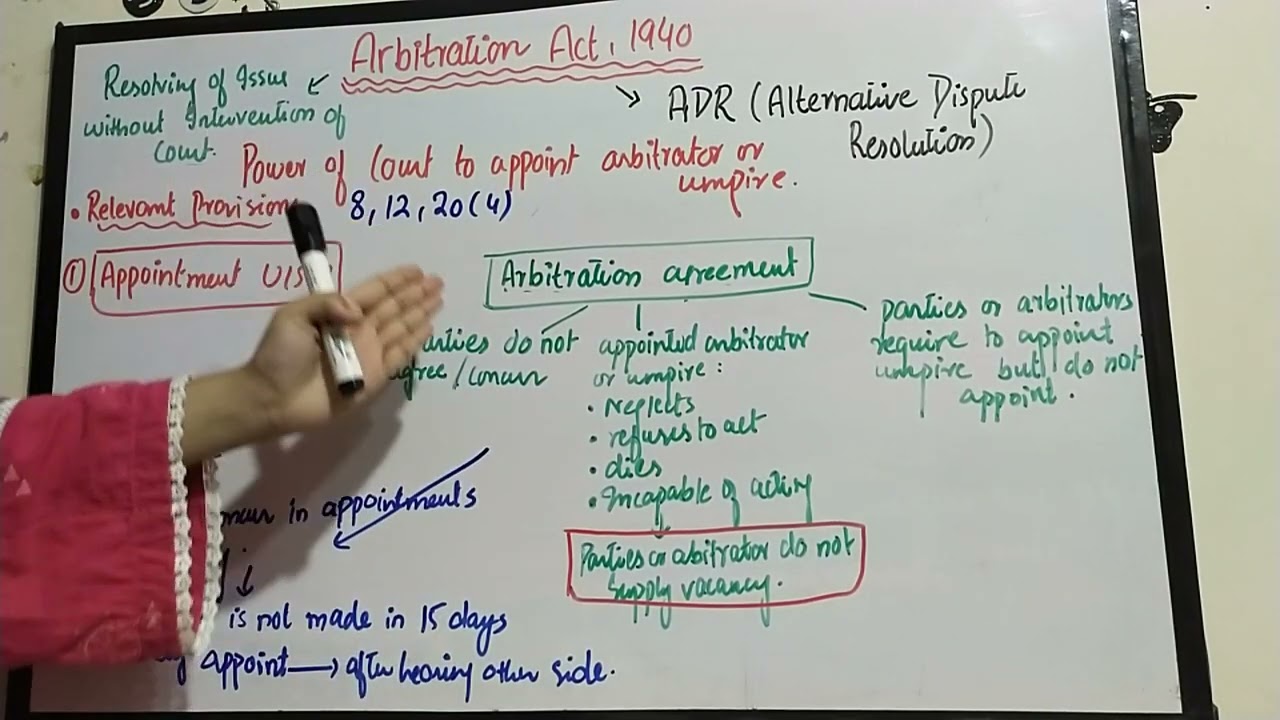 Arbitration Act, 1940
Resolving of Issue
without Intervention of
Court.
ADR (Alternative Dispute
Resolution)
Power of Court to appoint arbitrator or
umpire.
• Relevant Provision 8, 12, 20(4)
① Appointment U/S
Arbitration agreement
arties do not
agree/concur
appointed arbitrator
or umpire:
• Neglects
• refuses to act
• dies
• Incapable of acting
Parties or arbitrator do not
supply vacancy.
parties or arbitrators
require to appoint
umpire but do not
appoint.
in appointments
is not made in 15 days
appoint → after hearing other side.